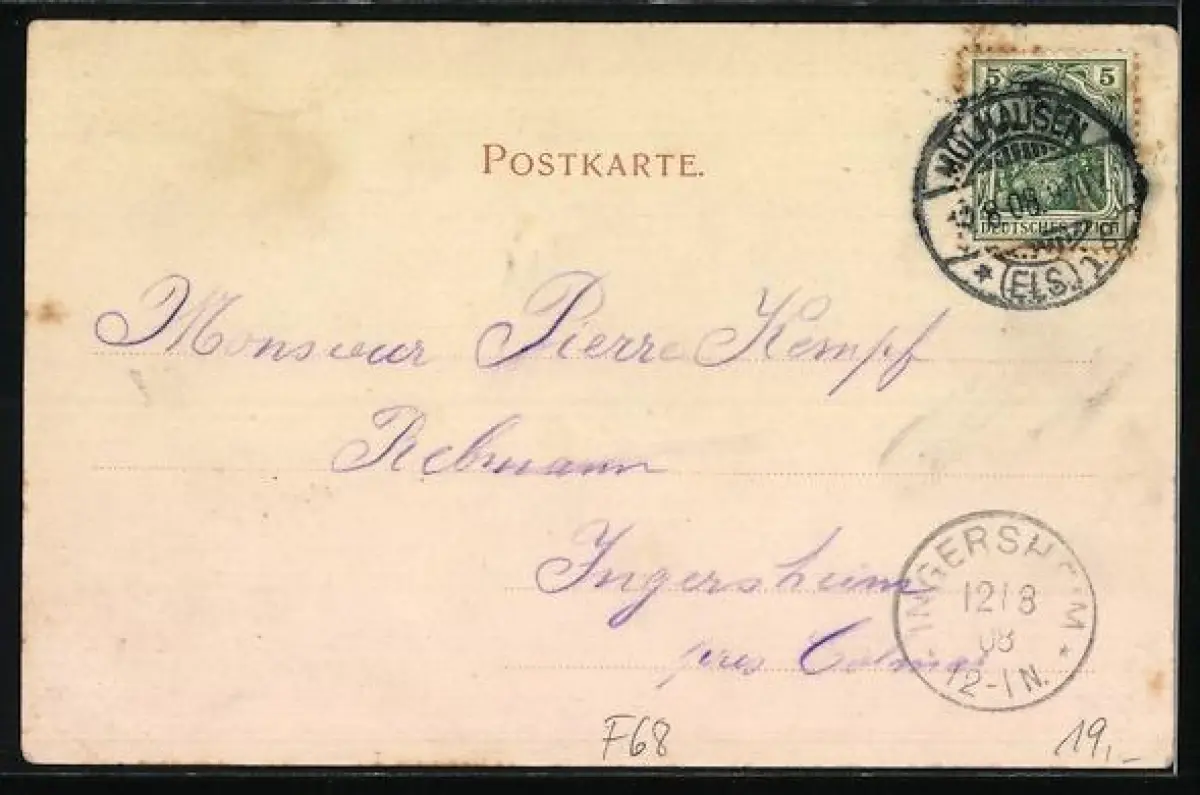 5 5
MÜLHAUSEN
8.08.
DEUTSCHES REICH
* (ELS.)
POSTKARTE.
Monsieur Pierre Kempf
Rebmann
Ingersheim
près Colmar
INGERSHEIM *
12 8
08
12-1N.
F68
19,-